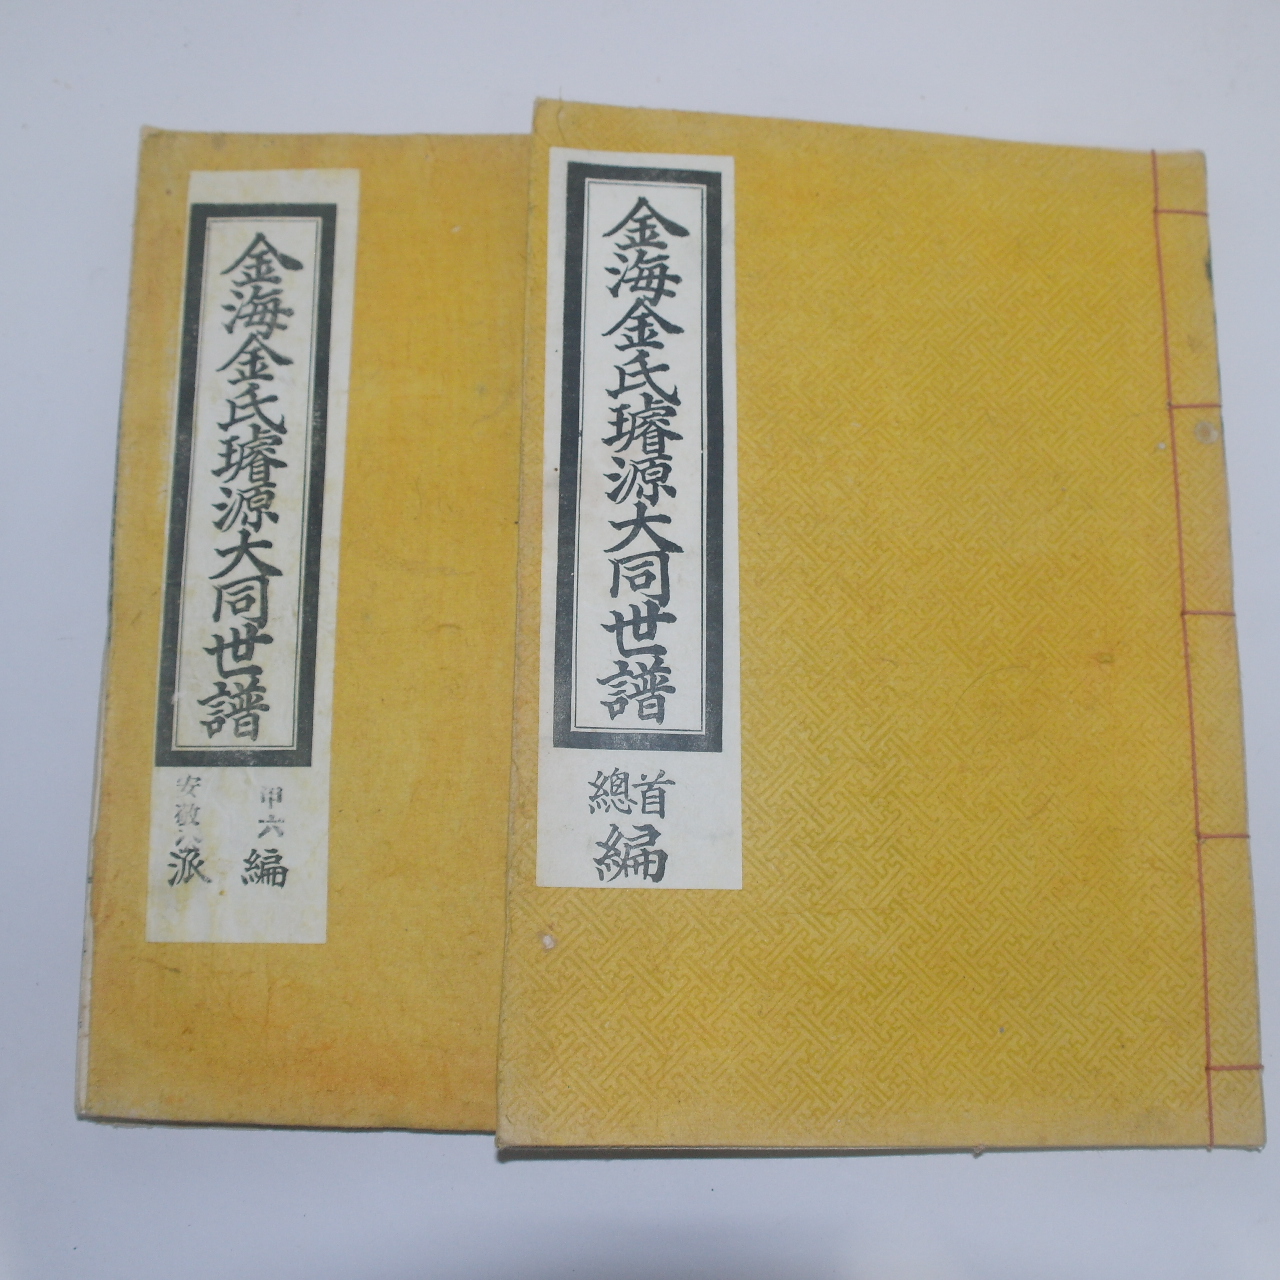 金海金氏璿源大同世譜
首總
編
金海金氏璿源大同世譜
甲六
編
安敬公
派